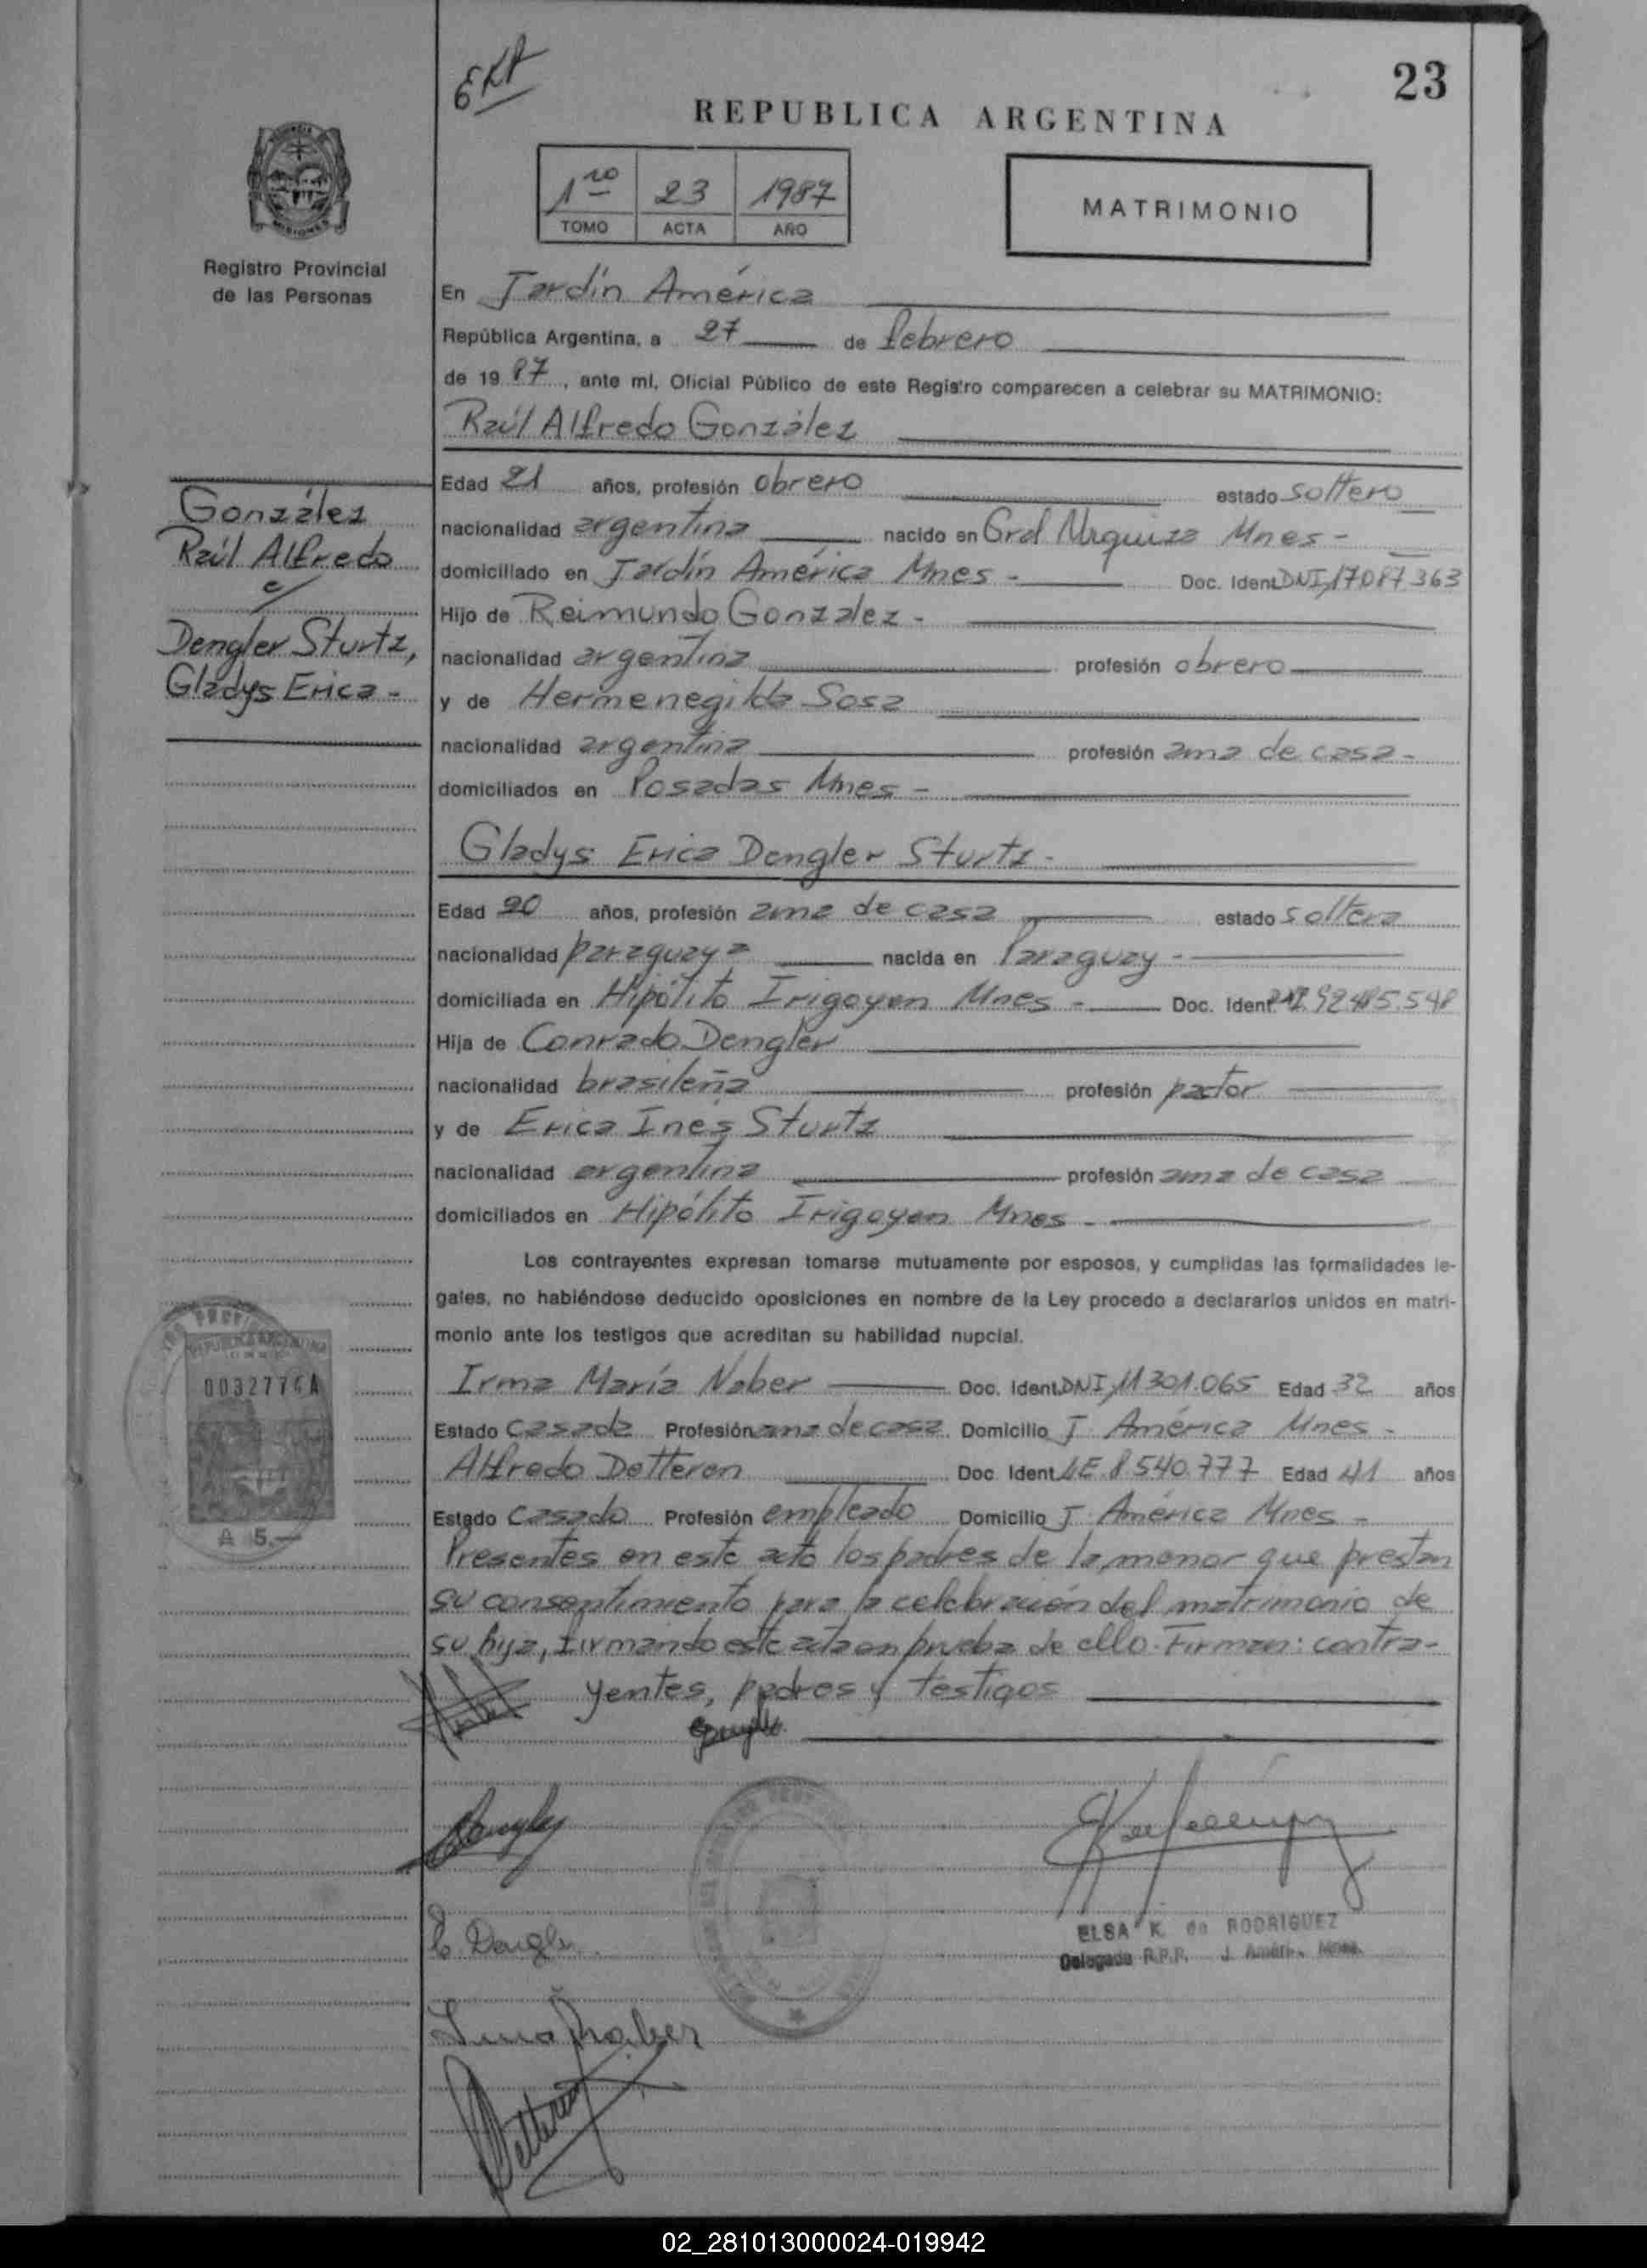 23
REPUBLICA ARGENTINA
MISIONES
Registro Provincial
de las Personas
1ro 23 1987
TOMO ACTA AÑO
MATRIMONIO
En Jardín América
República Argentina, a 27 de febrero
de 19 87, ante mí, Oficial Público de este Registro comparecen a celebrar su MATRIMONIO:
Raúl Alfredo González
González
Raúl Alfredo
c/
Dengler Sturtz,
Gladys Erica -
Edad 21 años, profesión obrero estado soltero
nacionalidad argentina nacido en Gral Urquiza Mnes -
domiciliado en Jardín América Mnes - Doc. Ident. DNI 17087.363
Hijo de Reimundo Gonzalez -
nacionalidad argentina profesión obrero
y de Hermenegilda Sosa
nacionalidad argentina profesión ama de casa -
domiciliados en Posadas Mnes -
Gladys Erica Dengler Sturtz -
Edad 20 años, profesión ama de casa estado soltera
nacionalidad paraguaya nacida en Paraguay -
domiciliada en Hipólito Irigoyen Mnes - Doc. Ident.
Hija de Conrado Dengler
nacionalidad brasileña profesión pastor
y de Erica Inés Sturtz
nacionalidad argentina profesión ama de casa
domiciliados en Hipólito Irigoyen Mnes -
Los contrayentes expresan tomarse mutuamente por esposos, y cumplidas las formalidades le-
gales, no habiéndose deducido oposiciones en nombre de la Ley procedo a declararlos unidos en matri-
monio ante los testigos que acreditan su habilidad nupcial.
REPUBLICA ARGENTINA
0032774A
A 5.—
Irma María Naber Doc. Ident. DNI 11301.065 Edad 32 años
Estado casada Profesión ama de casa Domicilio J. América Mnes -
Alfredo Detteren Doc. Ident. LE.8540.777 Edad 41 años
Estado casado Profesión empleado Domicilio J. América Mnes -
Presentes en este acto los padres de la menor que prestan
su consentimiento para la celebración del matrimonio de
su hija, firmando este acta en prueba de ello. Firman: contra-
yentes, padres y testigos
ELSA K. de RODRIGUEZ
Delegada R.P.P. J. Amér. Mnes.
02_281013000024-019942